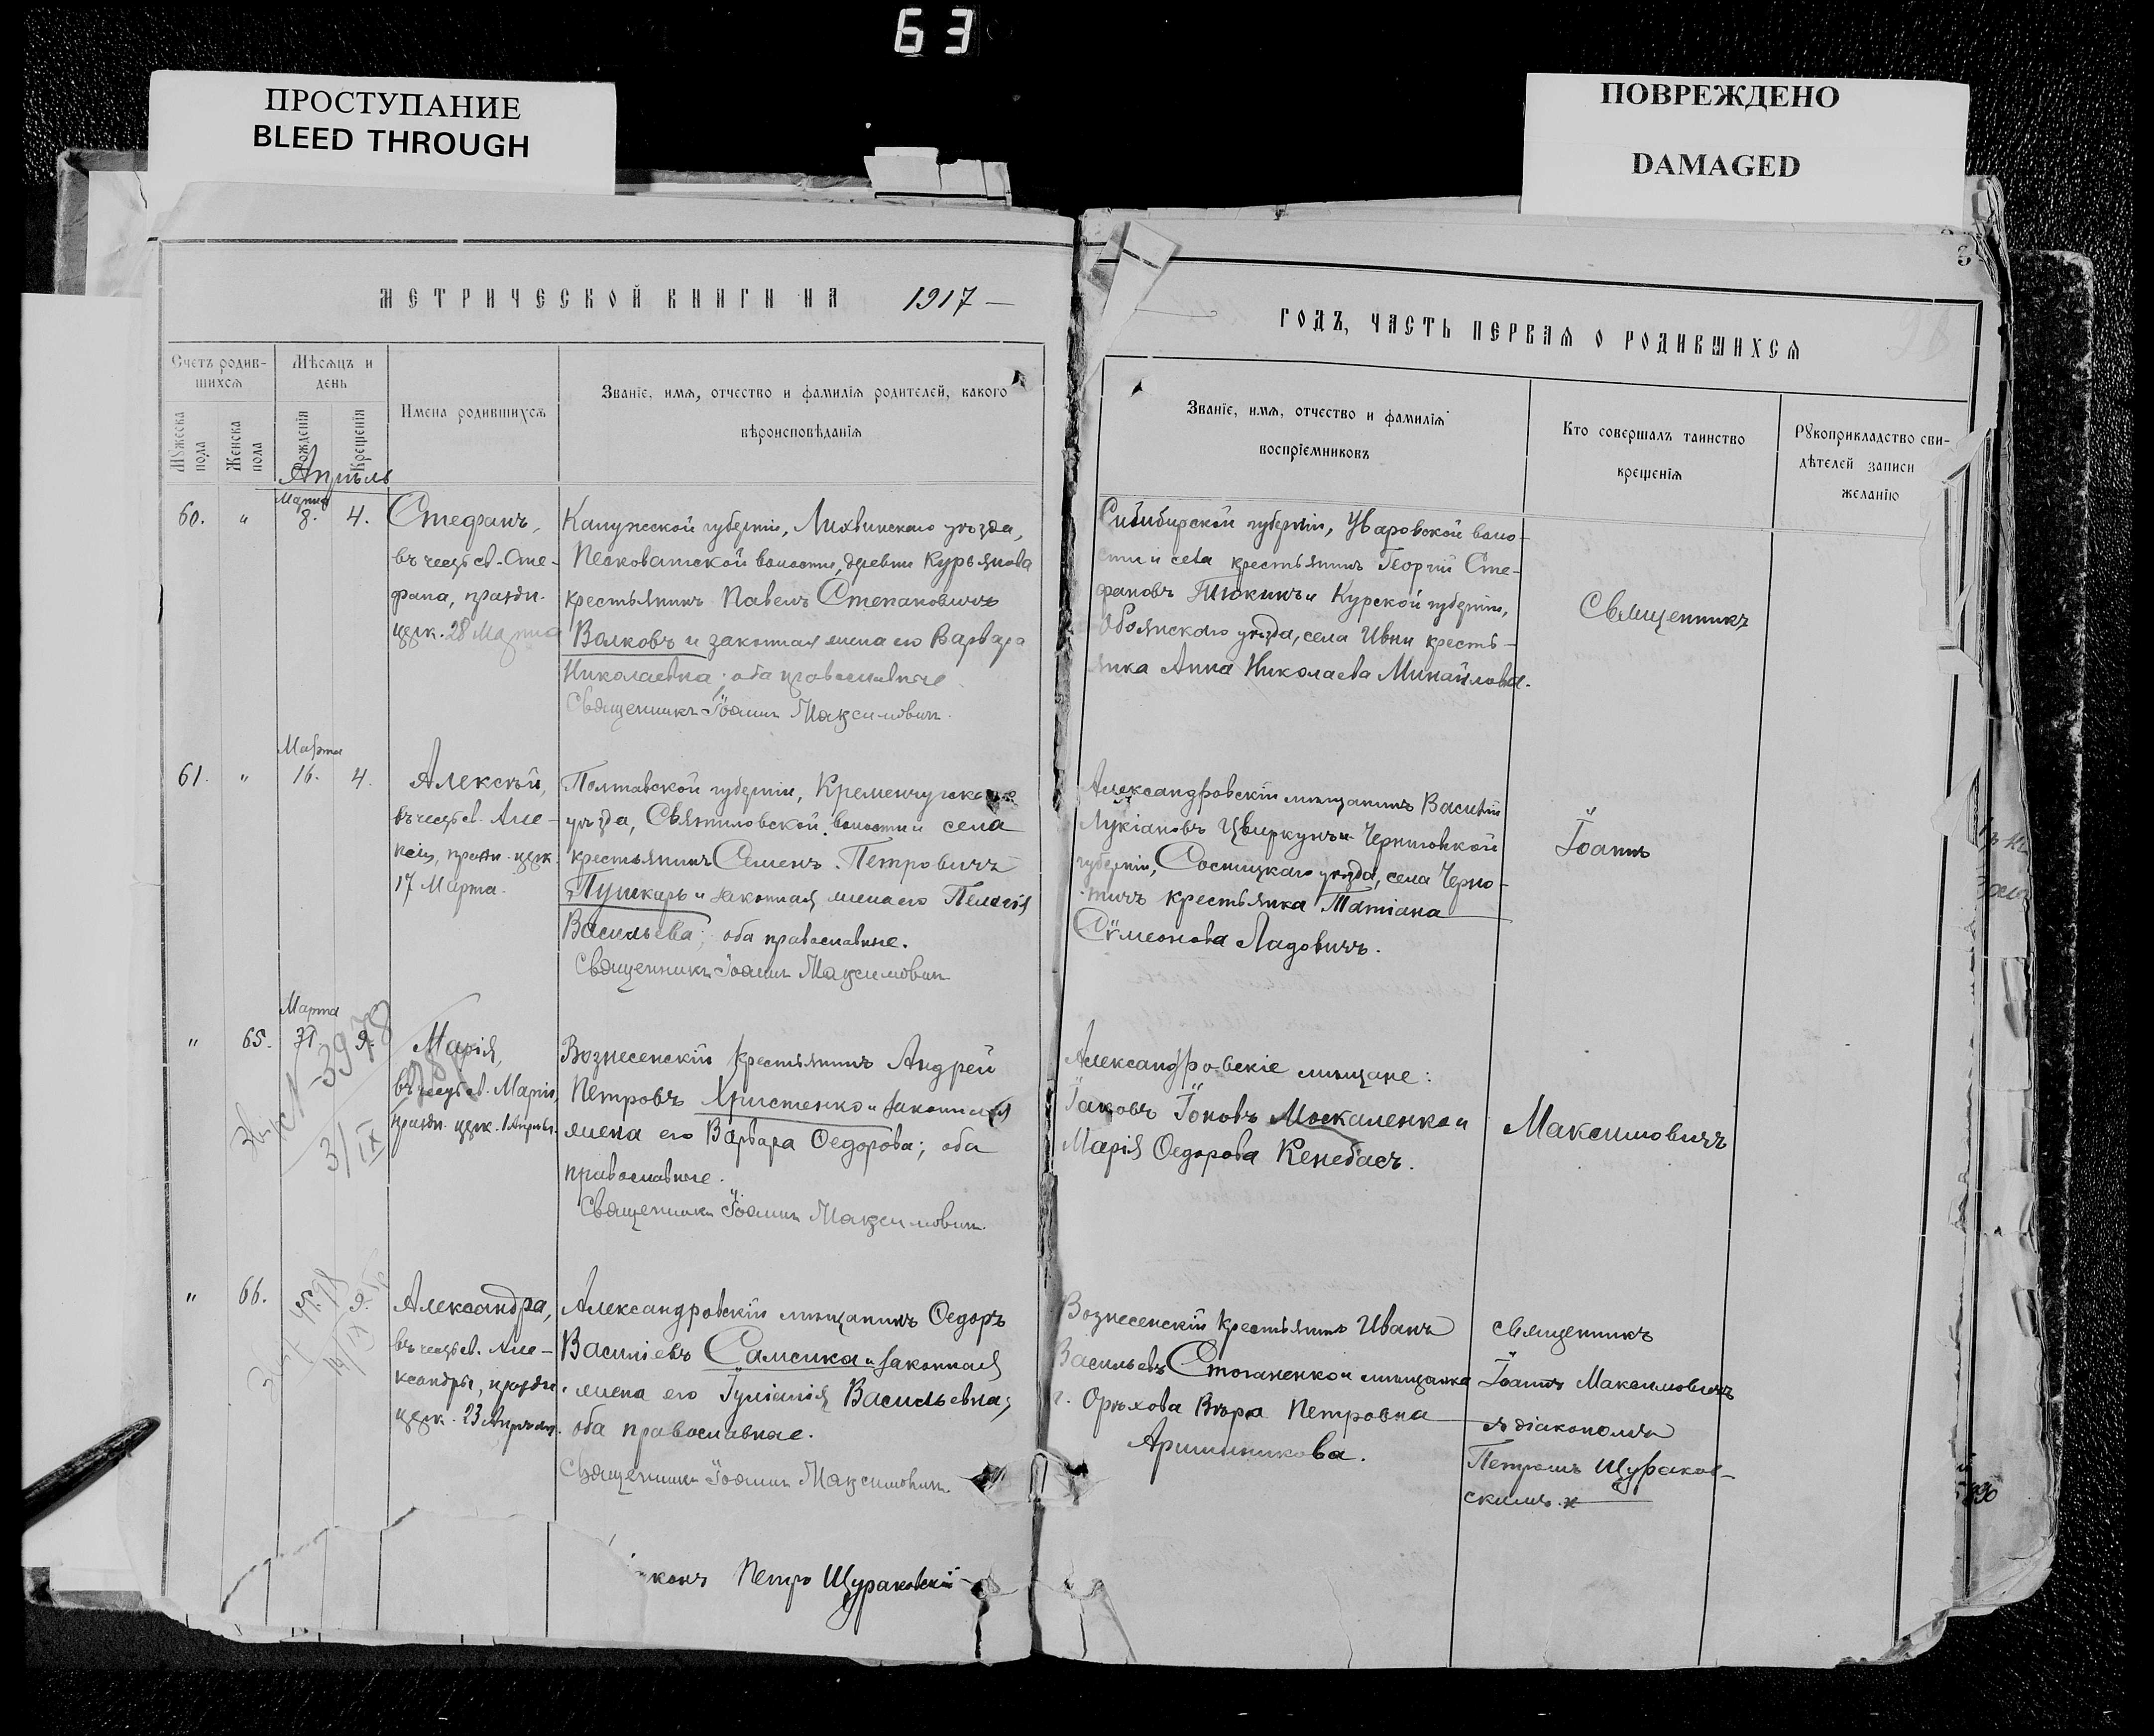 63
ПРОСТУПАНИЕ
BLEED THROUGH
ПОВРЕЖДЕНО
DAMAGED
МЕТРИЧЕСКОЙ КНИГИ НА 1917 —
Счетъ родив-
шихся
Мѣсяцъ и
день
Мужеска
пола
Женска
пола
Рожденія
Крещенія
Имена родившихся
Званіе, имя, отчество и фамилія родителей, какого
вѣроисповѣданія
Апрѣль
60. "
Марта
8. 4.
Стефанъ,
въ честь св. Сте-
фана, праздн.
церк. 28 Марта
Калужской губерніи, Лихвинскаго уѣзда,
Песковатской волости, деревни Курьянова
крестьянинъ Павелъ Степановичъ
Волковъ и законная жена его Варвара
Николаевна; оба православные.
Священникъ Іоаннъ Максимовичъ.
61. "
Марта
16. 4.
Алексѣй,
въ честь св. Але-
ксія, праздн. церк.
17 Марта.
Полтавской губерніи, Кременчугскаго
уѣзда, Святиловской волости и села
крестьянинъ Семенъ Петровичъ
Пушкарь и законная жена его Пелагія
Васильева; оба православные.
Священникъ Іоаннъ Максимовичъ
" 65.
Марта
31 9.
Марія,
въ честь св. Маріи,
праздн. церк. 1 Апрѣля.
3978
3/IX
Вознесенскій крестьянинъ Андрей
Петровъ Христенко и законная
жена его Варвара Ѳедорова; оба
православные.
Священникъ Іоаннъ Максимовичъ.
" 66.
9.
Александра,
въ честь св. Але-
ксандры, праздн.
церк. 23 Апрѣля.
Александровскій мѣщанинъ Ѳедоръ
Василіевъ Самсика и законная
жена его Іуліанія Васильевна;
оба православные.
Священникъ Іоаннъ Максимовичъ.
конъ Петръ Щураковскій
ГОДЪ, ЧАСТЬ ПЕРВАЯ О РОДИВШИХСЯ
Званіе, имя, отчество и фамилія
воспріемниковъ
Кто совершалъ таинство
крещенія
Рукоприкладство сви-
дѣтелей записи
желанію
губерніи, Уваровской воло-
сти и села крестьянинъ Георгій Сте-
фановъ и Курской губерніи,
Обоянскаго уѣзда, села Ивни кресть-
янка Анна Николаева Михайлова.
Священникъ
Александровскій мѣщанинъ Василій
Лукіановъ Цвиркунъ и Черниговской
губерніи, Сосницкаго уѣзда, села Черно-
тичъ крестьянка Татіана
Сѵмеонова Ладовичъ.
Іоаннъ
Александровскіе мѣщане:
Іаковъ Іоновъ Москаленко и
Марія Ѳедорова Кенебасъ.
Максимовичъ
Вознесенскій крестьянинъ Иванъ
Васильевъ Стоганенко и мѣщанка
г. Орѣхова Вѣра Петровна
Аришникова.
священникъ
Іоаннъ Максимовичъ
съ діакономъ
Петромъ Щураков-
скимъ.